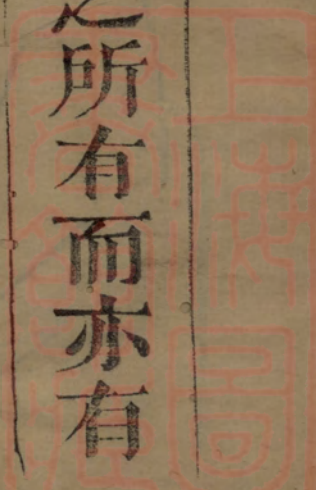 之所有而亦有